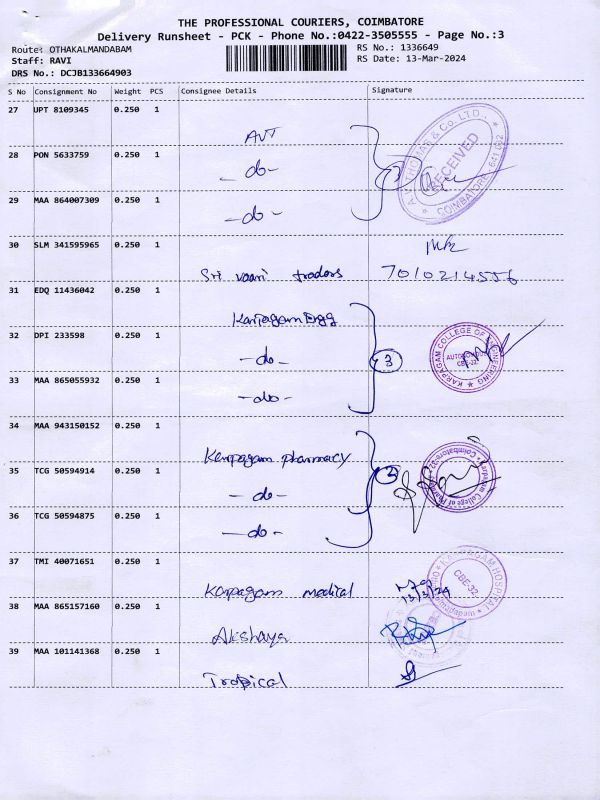 THE PROFESSIONAL COURIERS, COIMBATORE
Delivery Runsheet - PCK - Phone No.:0422-3505555 - Page No.:3
Route: OTHAKALMANDABAM RS No.: 1336649
Staff: RAVI RS Date: 13-Mar-2024
DRS No.: DCJB133664903
S No Consignment No Weight PCS Consignee Details Signature
27 UPT 8109345 0.250 1 AVT
A.V. THOMAS & Co. LTD., RECEIVED COIMBATORE - 641 032
28 PON 5633759 0.250 1 -do-
29 MAA 864007309 0.250 1 -do-
30 SLM 341595965 0.250 1 Sri vaari traders 7010214556
31 EDQ 11436042 0.250 1 Karpagam Engg
32 DPI 233598 0.250 1 -do- 3
KARPAGAM COLLEGE OF ENGINEERING AUTONOMOUS CBE-32
33 MAA 865055932 0.250 1 -do-
34 MAA 943150152 0.250 1 Karpagam pharmacy
Karpagam College of Pharmacy Coimbatore-32
35 TCG 50594914 0.250 1 -do-
36 TCG 50594875 0.250 1 -do-
37 TMI 40071651 0.250 1 Karpagam medical 13/3/24
HOSPITAL CBE-32
38 MAA 865157160 0.250 1 Akshaya
39 MAA 101141368 0.250 1 Tropical